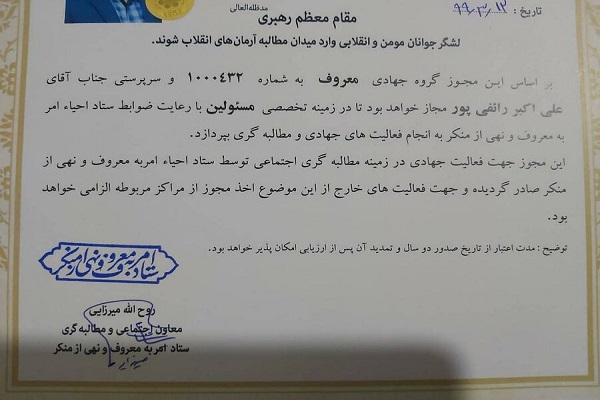 مدظله‌العالی
تاریخ: ۹۹/۳/۱۳
مقام معظم رهبری
لشگر جوانان مومن و انقلابی وارد میدان مطالبه آرمان‌های انقلاب شوند.
بر اساس این مجوز گروه جهادی معروف به شماره ۱۰۰۰۴۳۲ و سرپرستی جناب آقای
علی اکبر رائفی پور مجاز خواهد بود تا در زمینه تخصصی مسئولین با رعایت ضوابط ستاد احیاء امر
به معروف و نهی از منکر به انجام فعالیت های جهادی و مطالبه گری بپردازد.
این مجوز جهت فعالیت جهادی در زمینه مطالبه گری اجتماعی توسط ستاد احیاء امربه معروف و نهی از
منکر صادر گردیده و جهت فعالیت های خارج از این موضوع اخذ مجوز از مراکز مربوطه الزامی خواهد
بود.
توضیح: مدت اعتبار از تاریخ صدور دو سال و تمدید آن پس از ارزیابی امکان پذیر خواهد بود.
ستاد امربه‌معروف و نهی ازمنکر
روح الله میرزایی
معاون اجتماعی و مطالبه گری
ستاد امربه معروف و نهی از منکر